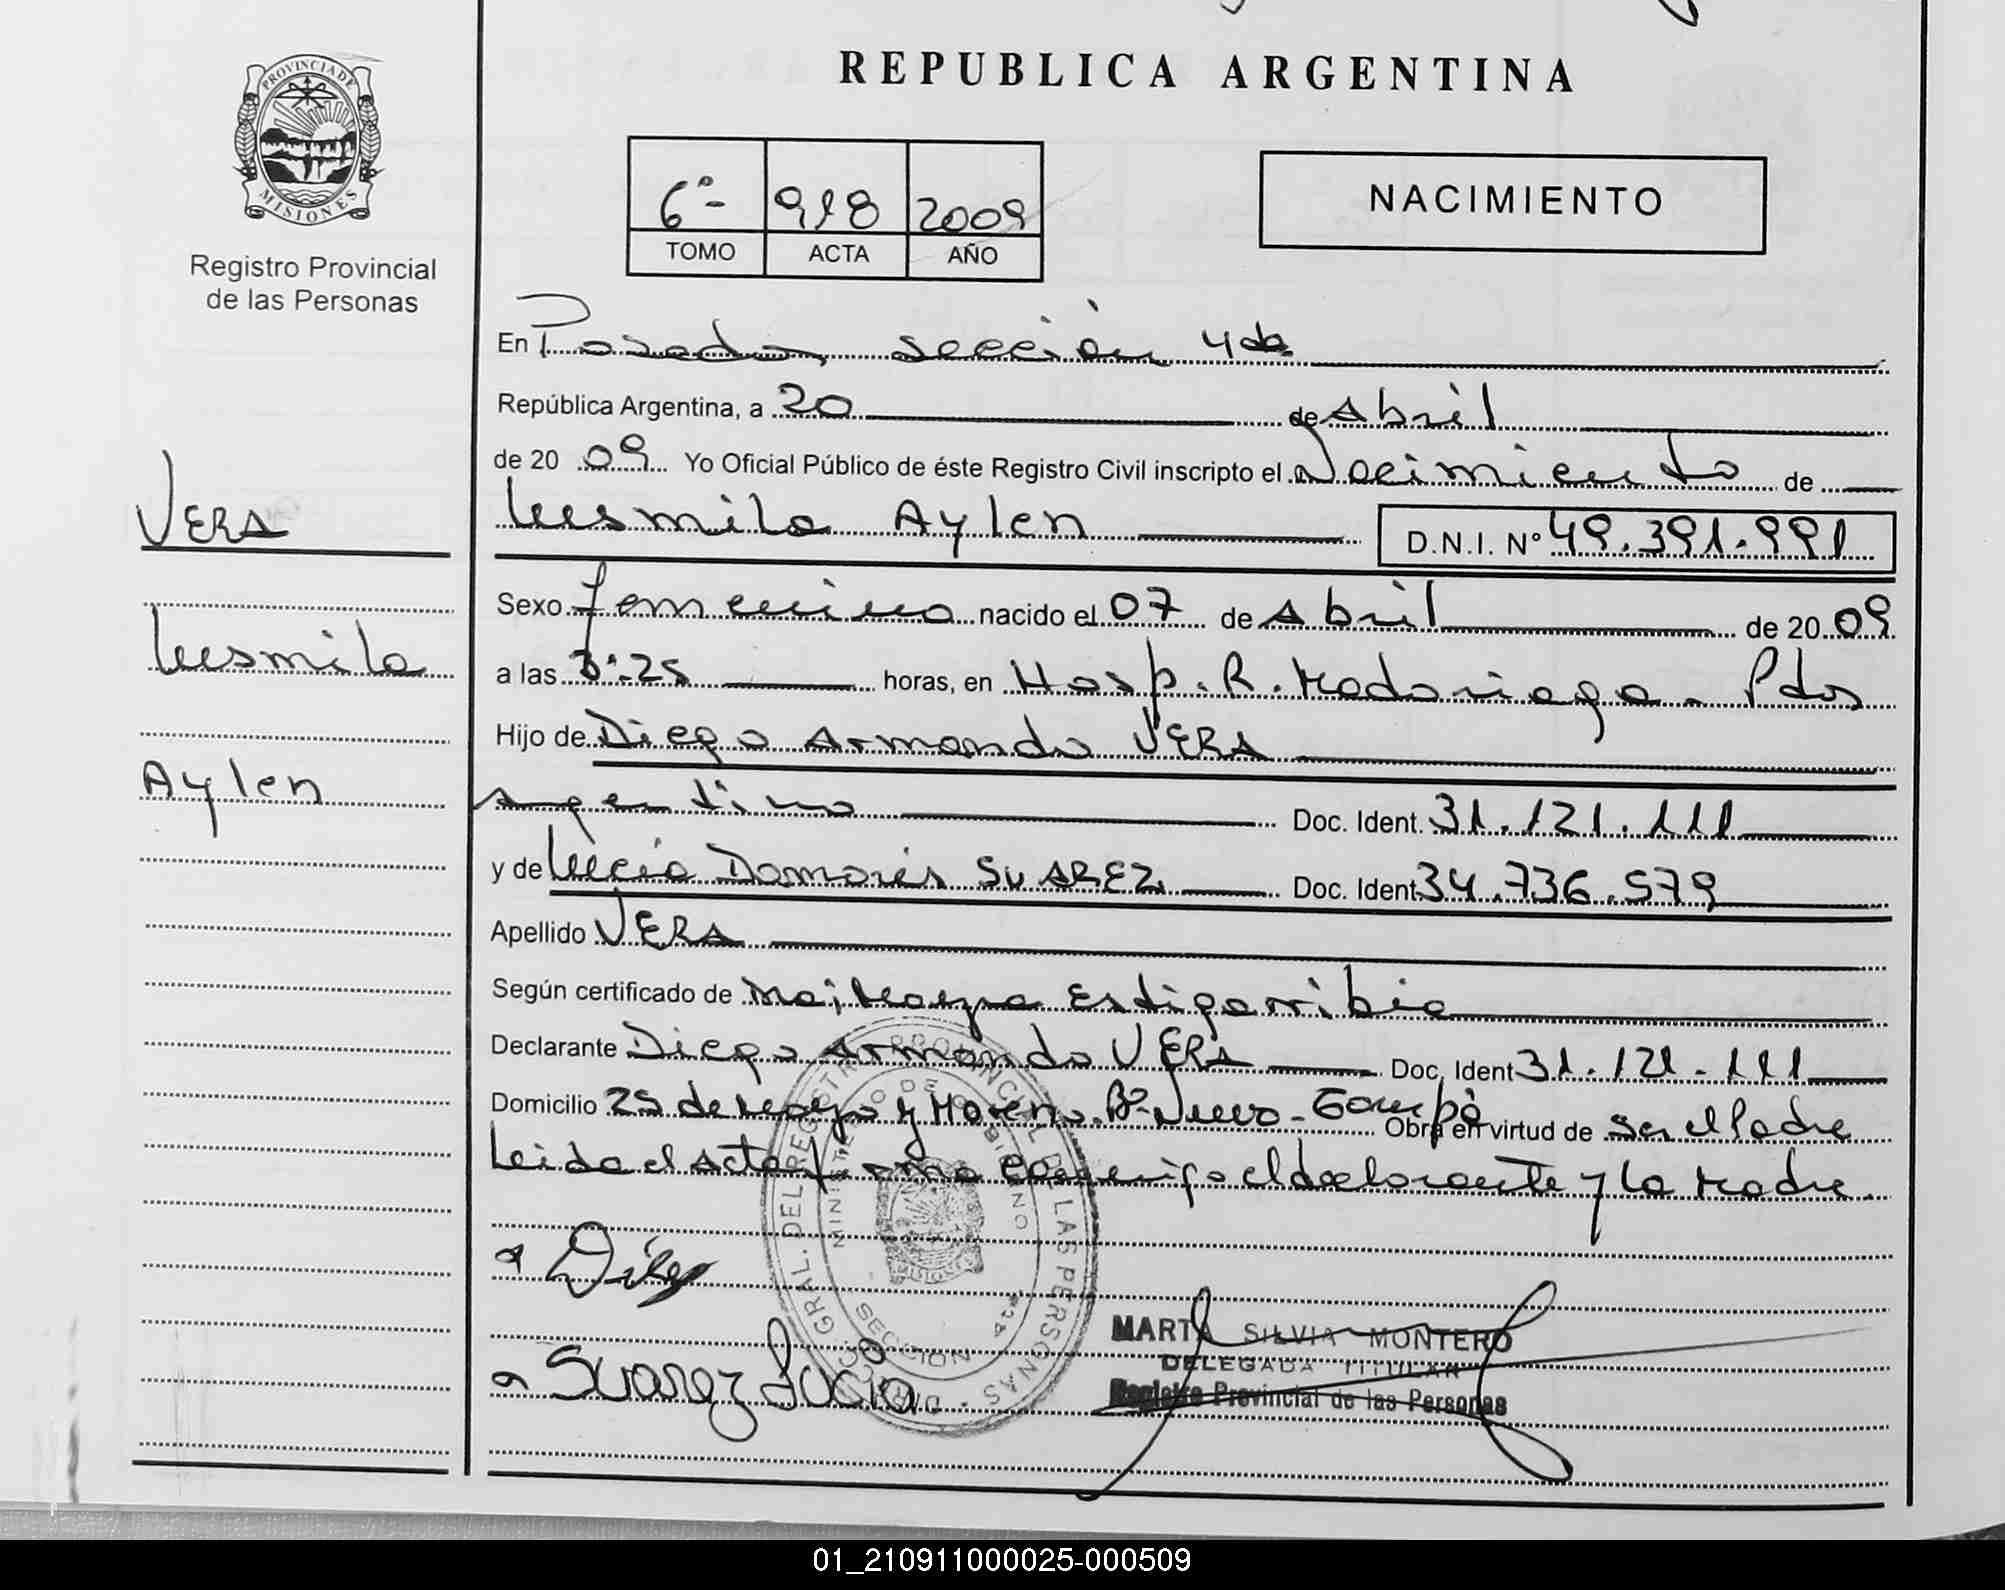 REPUBLICA ARGENTINA
PROVINCIA DE
MISIONES
Registro Provincial
de las Personas
6º- 918 2009
TOMO ACTA AÑO
NACIMIENTO
VERA
Luzmila
Aylen
En Posadas, sección 4ta
República Argentina, a 20 de Abril
de 20 09 Yo Oficial Público de éste Registro Civil inscripto el Nacimiento de
Luzmila Aylen D.N.I. Nº 49.391.991
Sexo femenino nacido el 07 de Abril de 20 09
a las 3:25 horas, en Hosp. R. Madariaga - Pdas
Hijo de Diego Armando VERA
Argentino Doc. Ident. 31.121.111
y de Lucia Damaris SUAREZ Doc. Ident 34.736.579
Apellido VERA
Según certificado de Estigarribia
Declarante Diego Armando VERA Doc. Ident 31.121.111
Domicilio 25 de Mayo y Moreno. Bº Nuevo - Garupá Obra en virtud de ser el Padre
Leida el Acta firma conmigo el declarante y la Madre
Diego
Suarez Lucia
DIREC. GRAL. DEL REGISTRO PROVINCIAL DE LAS PERSONAS
MINISTERIO DE GOBIERNO
MISIONES
SECCION 4ta
MARTA SILVIA MONTERO
DELEGADA TITULAR
Registro Provincial de las Personas
01_210911000025-000509